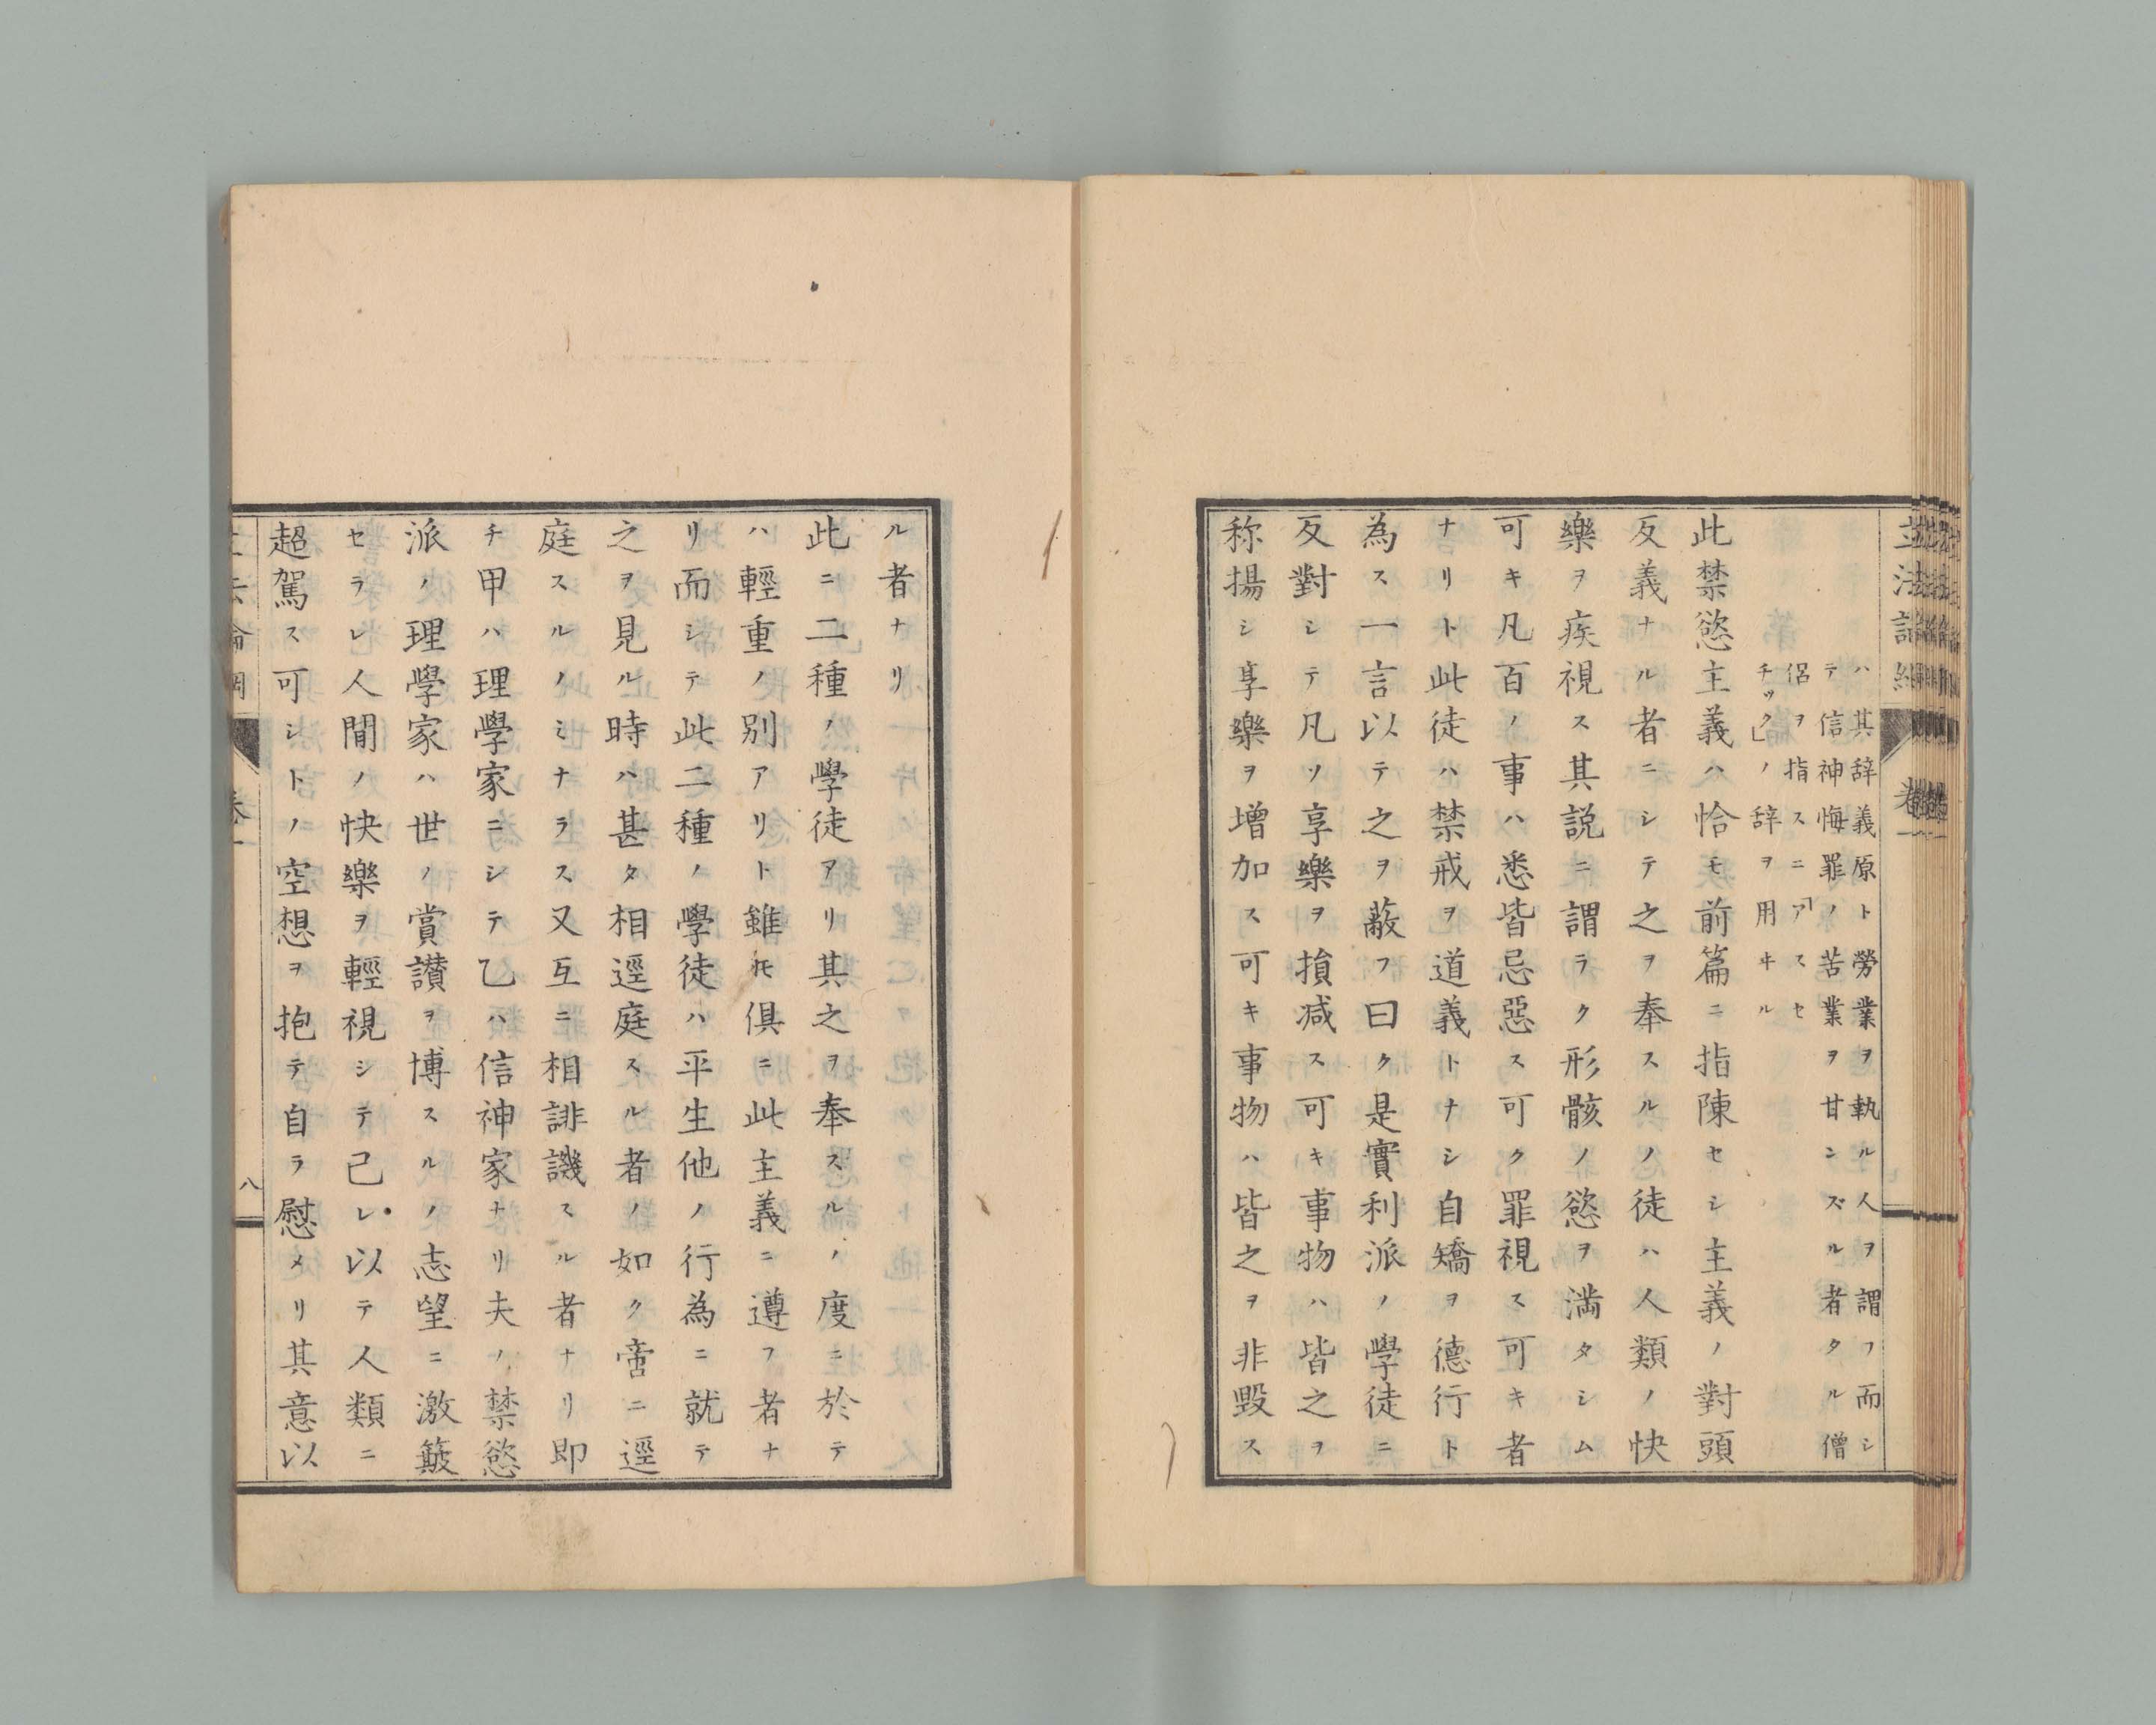 立法論綱 卷一
ハ其辞義原ト勞業ヲ執ル人ヲ謂フ而シ
テ信神悔罪ノ苦業ヲ甘ンズル者タル僧
侶ヲ指スニ「アスセ
チック」ノ辞ヲ用ヰル
此禁慾主義ハ恰モ前篇ニ指陳セシ主義ノ對頭
反義ナル者ニシテ之ヲ奉スルノ徒ハ人類ノ快
樂ヲ疾視ス其説ニ謂ラク形骸ノ慾ヲ満タシム
可キ凡百ノ事ハ悉皆忌惡ス可ク罪視ス可キ者
ナリト此徒ハ禁戒ヲ道義トナシ自矯ヲ德行ト
為ス一言以テ之ヲ蔽フ曰ク是實利派ノ學徒ニ
反對シテ凡ソ享樂ヲ損减ス可キ事物ハ皆之ヲ
称揚シ享樂ヲ增加ス可キ事物ハ皆之ヲ非毀ス
ル者ナリ
此ニ二種ノ學徒アリ其之ヲ奉スルノ度ニ於テ
ハ輕重ノ別アリト雖𪜈俱ニ此主義ニ遵フ者ナ
リ而シテ此二種ノ學徒ハ平生他ノ行為ニ就テ
之ヲ見ル時ハ甚タ相逕庭スル者ノ如ク啻ニ逕
庭スルノミナラス又互ニ相誹譏スル者ナリ即
チ甲ハ理學家ニシテ乙ハ信神家ナリ夫ノ禁慾
派ノ理學家ハ世ノ賞讃ヲ博スルノ志望ニ激簸
セラレ人間ノ快樂ヲ輕視シテ己レ以テ人類ニ
超駕ス可シトノ空想ヲ抱テ自ラ慰メリ其意以
八